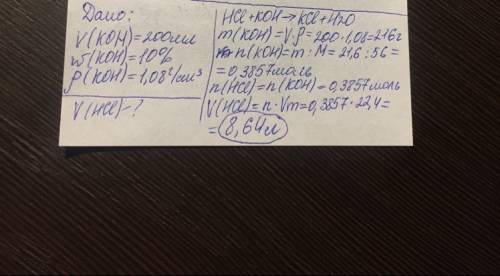 Дано:
V(KOH)=200мл
ω(KOH)=10%
ρ(KOH)=1,08г/см³
V(HCl)-?
HCl+KOH→KCl+H2O
m(KOH)=V·ρ=200·1,08=216г
n(KOH)=m·M=21,6:56=
=0,3857моль
n(HCl)=n(KOH)=0,3857моль
V(HCl)=n·Vm=0,3857·22,4=
=8,64л